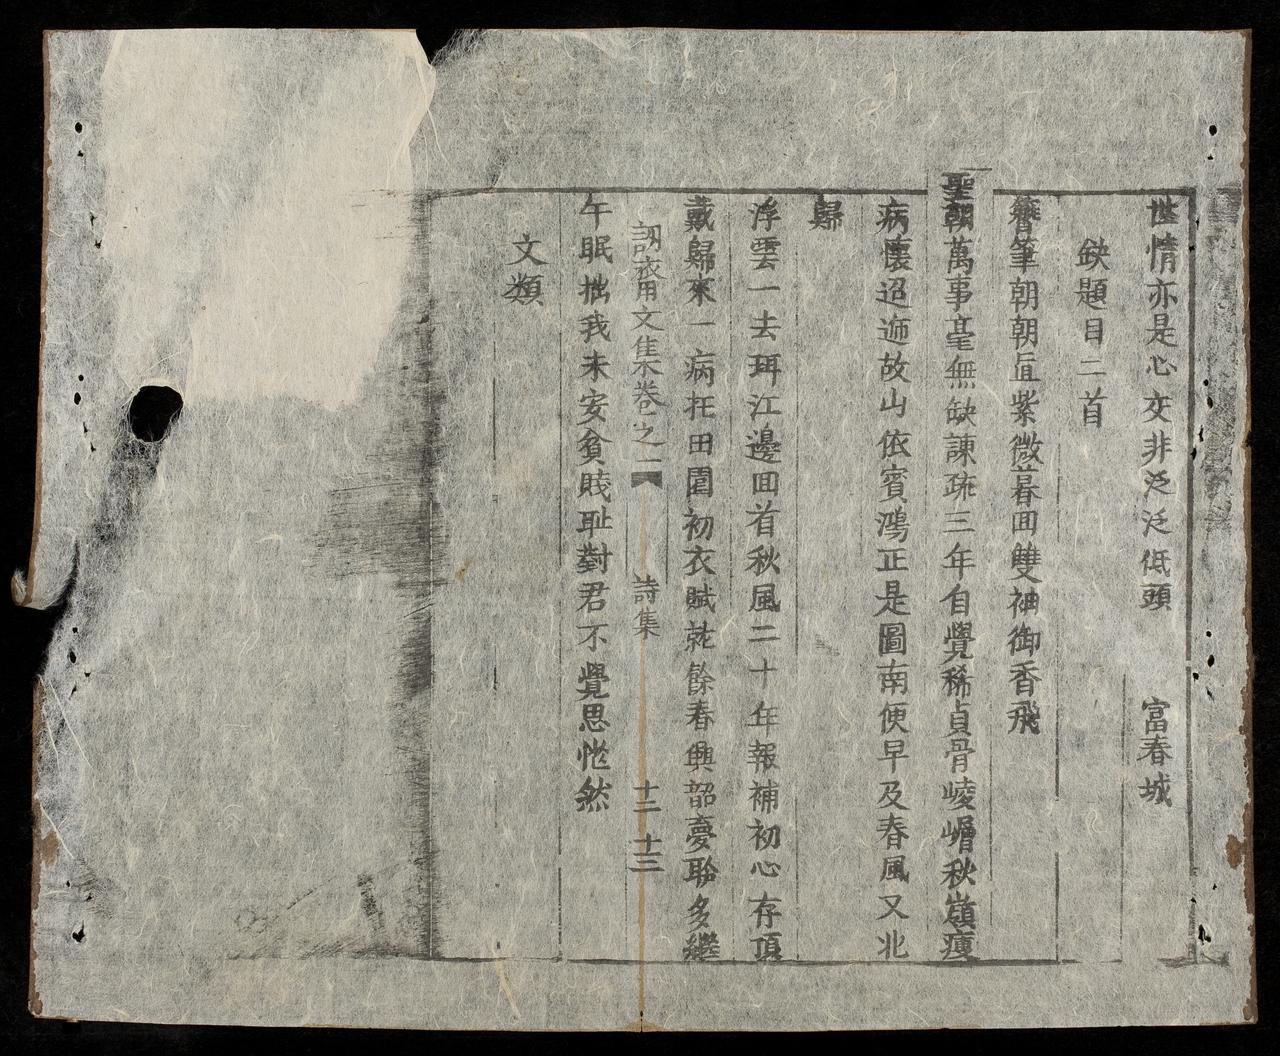 世情亦是心交非泛泛低頭 富春城
缺題目二首
簪筆朝朝直紫微暮回雙袖御香飛
聖朝萬事毫無缺諫疏三年自覺稀貞骨崚嶒秋嶺瘦
病懷迢遞故山依賓鴻正是圖南便早及春風又北
歸
浮雲一去珥江邊回首秋風二十年報補初心存頂
戴歸來一病在田園初衣賦就餘春興韶夢聆多繼
訒齋用文集卷之一 詩集 十二 十三
午眠拙我未安貧賤恥對君不覺思惘然
文類